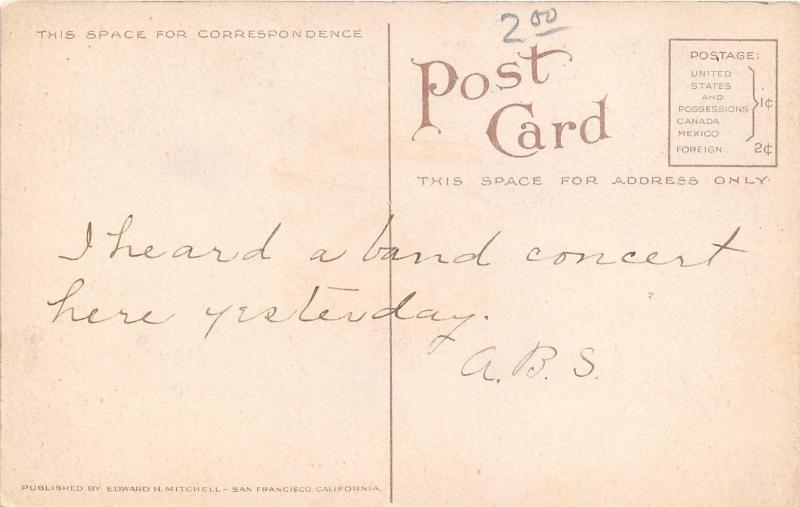 THIS SPACE FOR CORRESPONDENCE
2 00
Post
Card
POSTAGE:
UNITED
STATES
AND
POSSESSIONS
CANADA
MEXICO
1¢
FOREIGN 2¢
THIS SPACE FOR ADDRESS ONLY.
I heard a band concert
here yesterday.
A. B. S.
PUBLISHED BY EDWARD H. MITCHELL – SAN FRANCISCO, CALIFORNIA.